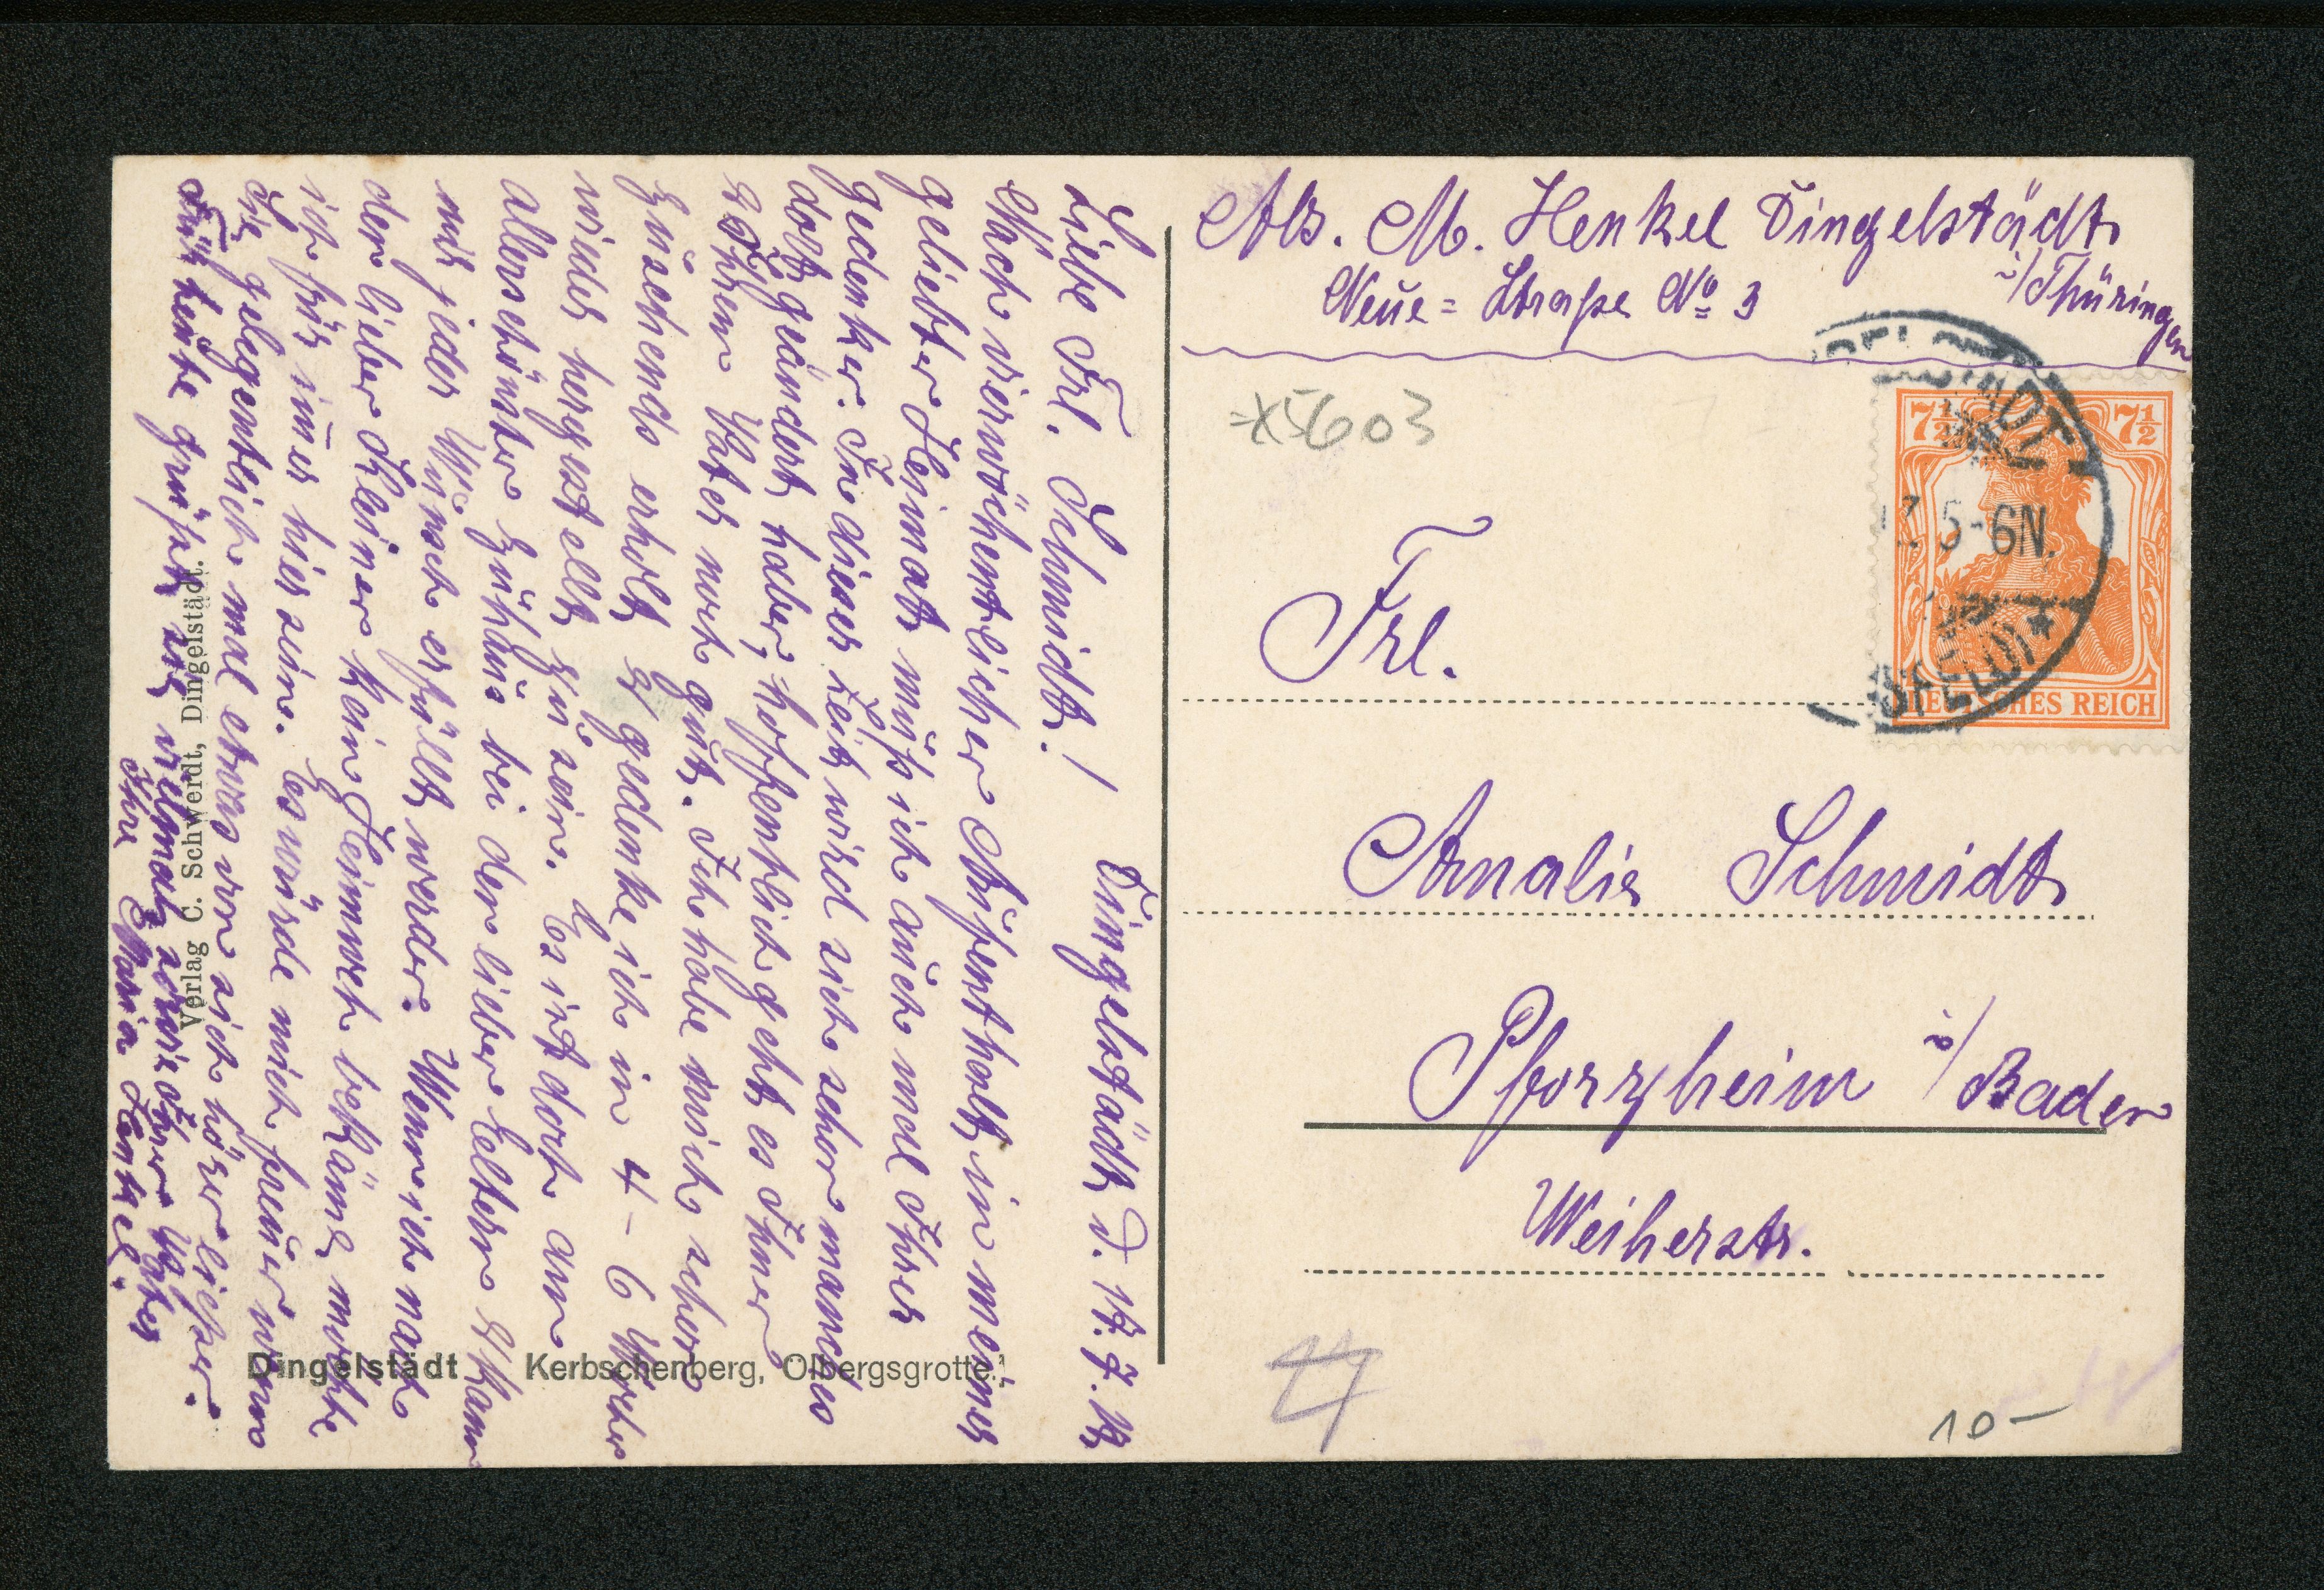 Abs. M. Henkel Dingelstädt
i/Thüringen
Neue=Straße No 3
5603
7½ 7½
5-6N.
DEUTSCHES REICH
Frl.
Amalie Schmidt
Pforzheim i/Baden
Weiherstr.
10-
Dingelstädt, d. 17.7.17
Liebe Frl. Schmidt!
Nach vierwöchentlicher Aufenthalt in meiner
geliebten Heimat muß ich auch mal Ihrer
gedenken. In dieser Zeit wird sich schon manches
dort geändert haben, hoffentlich geht es Ihnen
& Ihrem Vater noch gut. Ich habe mich schon
zusehends erholt & gedenke ich in 4-6 Wochen
wieder hergestellt zu sein. Es ist doch am
allerschönsten zuhaus bei den lieben Eltern & kann
mir jeder Wunsch erfüllt werden. Wenn ich nach
der lieben Kleinen kein Heimweh bekäme, möchte
ich für immer hier sein. Es würde mich freuen wenn
Sie gelegentlich mal etwas von sich hören ließen.
Für heute grüßt Sie vielmals sowie Ihren Vater
Ihre Maria Henkel.
Verlag C. Schwerdt, Dingelstädt.
Dingelstädt Kerbschenberg, Ölbergsgrotte.